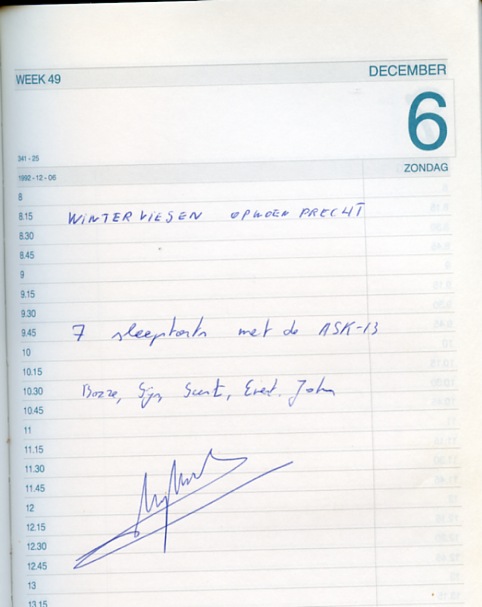 WEEK 49 DECEMBER
6
341 - 25
1992 - 12 - 06 ZONDAG
8
8.15 WINTERVLIEGEN
8.30
8.45
9
9.15
9.30
9.45 7 sleepstarts met de ASK-13
10
10.15
10.30 John
10.45
11
11.15
11.30
11.45
12
12.15
12.30
12.45
13
13.15